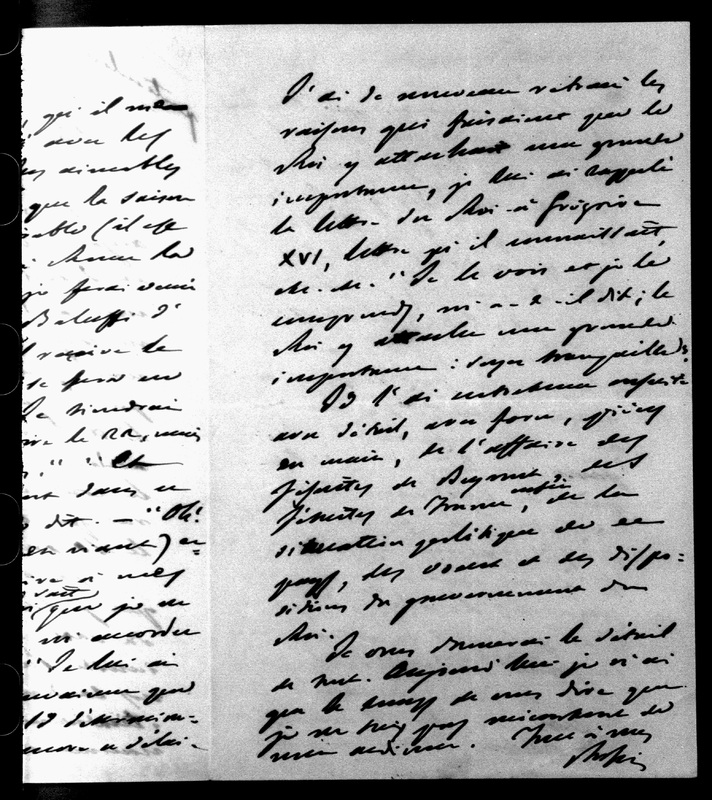 qu'il me
avec les
aimables
que la saison
(il est
je ferai venir
Baluffi
reçoive le
se fera en
Je tiendrai
le 22, mais
" " et
dans un
dit. — "Oh!
en riant) en=
à mes
que je ne
m'accorder
Je lui ai
que
encore a
J'ai de nouveau retracé les
raisons qui faisaient que le
Roi y attachait une grande
importance, je lui ai rappelé
la lettre du Roi à Grégoire
XVI, lettre qu'il connaissait,
"Je le vois et je le
comprends, m'a-t-il dit; le
Roi y attache une grande
importance: soyez tranquille."
Je l'ai entretenu ensuite
avec détail, avec force, pièces
en main, de l'affaire des
Jésuites de Beyrout, des
Jésuites de France, enfin, de la
situation politique de ce
pays, des vœux et des dispo=
sitions du gouvernement du
Roi.
Je vous donnerai le détail
de tout. Aujourd'hui je n'ai
que le temps de vous dire que
je ne suis pas mécontent de
mon audience. Tout à vous
Rossi